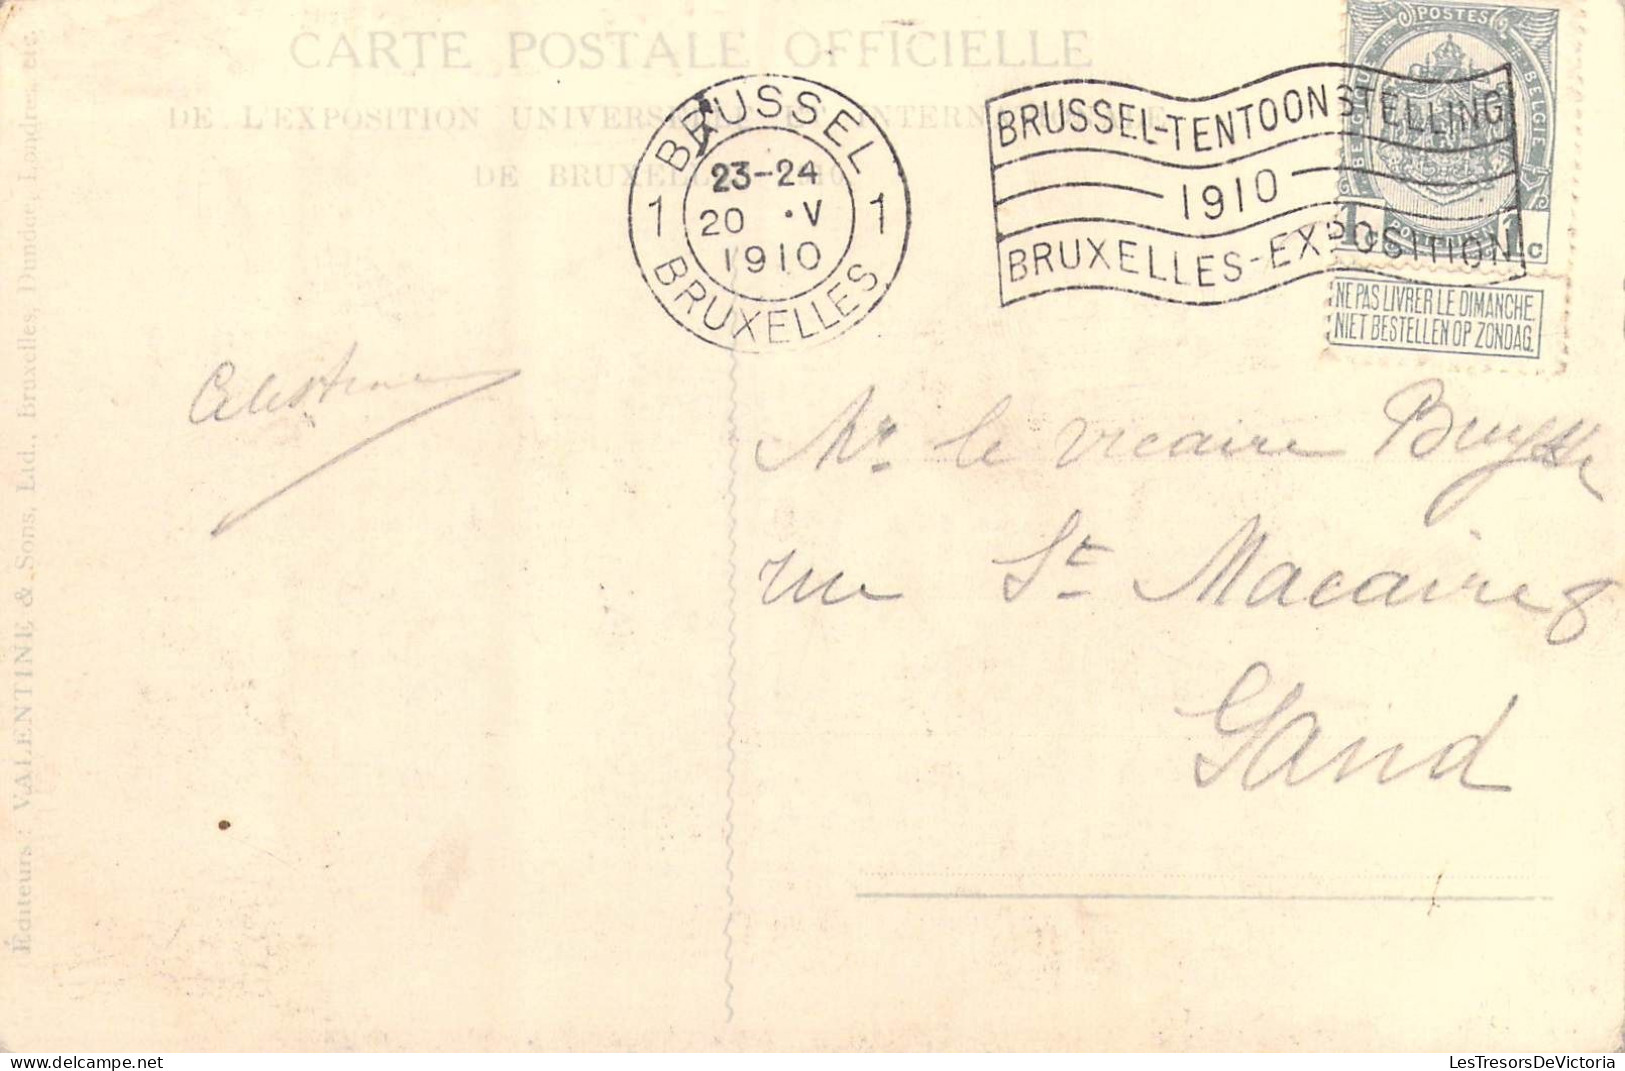 CARTE POSTALE OFFICIELLE
DE L'EXPOSITION UNIVERSELLE ET INTERNATIONALE
DE BRUXELLES 1910
BRUSSEL
23-24
1 20 · V 1
1910
BRUXELLES
BRUSSEL-TENTOONSTELLING
1910
BRUXELLES-EXPOSITION
POSTES
BELGIQUE BELGIË
POSTERIJEN
1 C 1 C
NE PAS LIVRER LE DIMANCHE.
NIET BESTELLEN OP ZONDAG.
Mr. le vicaire
rue St Macaire 8
Gand
Éditeurs: VALENTINE & Sons, Ltd., Bruxelles, Dundee, Londres, etc.
delcampe.net
LesTresorsDeVictoria